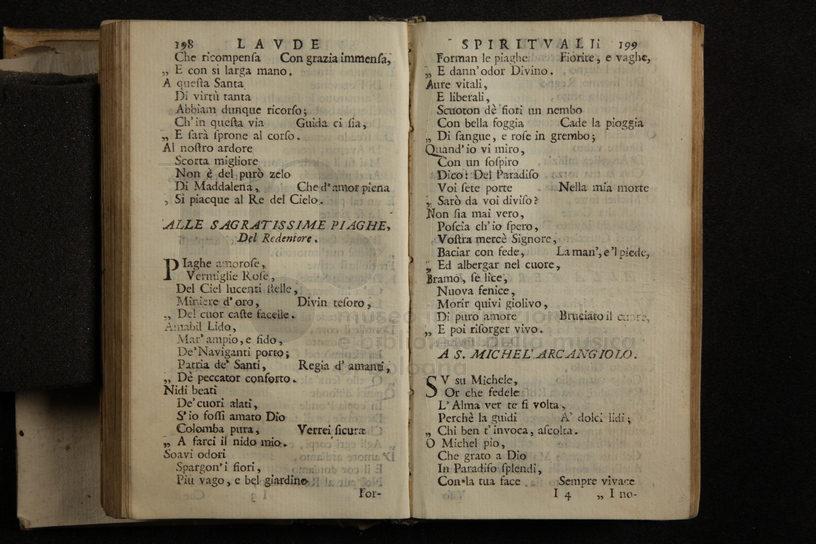 198 LAVDE
Che ricompenſa Con grazia immenſa,
„ E con si larga mano.
A queſta Santa
Di virtù tanta
Abbiam dunque ricorſo;
Ch'in queſta via Guida ci ſia,
„ E ſarà ſprone al corſo.
Al noſtro ardore
Scorta migliore
Non è del purò zelo
Di Maddalena, Che d'amor piena
, Si piacque al Re del Cielo.
ALLE SAGRATISSIME PIAGHE,
Del Redentore.
PIaghe amoroſe,
Vermiglie Roſe,
Del Ciel lucenti ſtelle,
Miniere d'oro, Divin teſoro,
„ Del cuor caſte facelle.
Amabil Lido,
Mar'ampio, e fido,
De'Naviganti porto;
Patria de' Santi, Regia d'amanti,
„ Dè peccator conforto.
Nidi beati
De'cuori alati,
S'io foſſi amato Dio
Colomba pura, Verrei ſicura
„ A farci il nido mio.
Soavi odori
Spargon'i fiori,
Più vago, e bel giardino
For-
SPIRITVALI: 199
Forman le piaghe Fiorite, e vaghe,
„ E dann'odor Divino.
Aure vitali,
E liberali,
Scuoton dè fiori un nembo
Con bella foggia Cade la pioggia
„ Di ſangue, e roſe in grembo;
Quand'io vi miro,
Con un ſoſpiro
Dico: Del Paradiſo
Voi ſete porte Nella mia morte
„ Sarò da voi diviſo?
Non ſia mai vero,
Poſcia ch'io ſpero,
Voſtra mercè Signore,
Baciar con fede, La man', e'l piede,
„ Ed albergar nel cuore,
Bramo, ſe lice,
Nuova fenice,
Morir quivi giolivo,
Di puro amore Bruciato il cuore,
„ E poi riſorger vivo.
A S. MICHEL'ARCANGIOLO.
SV su Michele,
Or che fedele
L'Alma ver te ſi volta,
Perchè la guidi A' dolci lidi;
„ Chi ben t'invoca, aſcolta.
O Michel pio,
Che grato a Dio
In Paradiſo ſplendi,
Con la tua face Sempre vivace
I 4 „ I no-